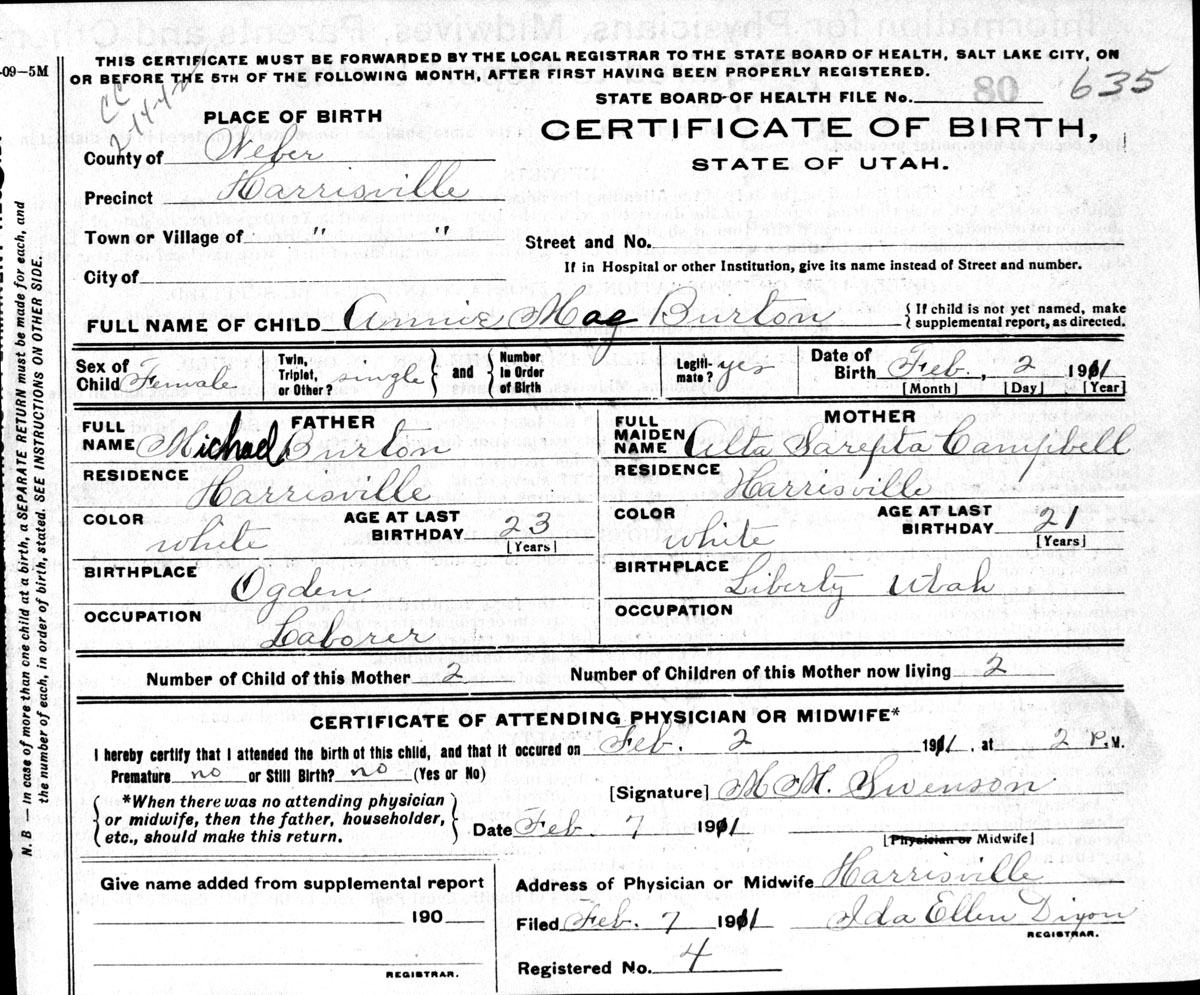 -09-5M
THIS CERTIFICATE MUST BE FORWARDED BY THE LOCAL REGISTRAR TO THE STATE BOARD OF HEALTH, SALT LAKE CITY, ON
OR BEFORE THE 5TH OF THE FOLLOWING MONTH, AFTER FIRST HAVING BEEN PROPERLY REGISTERED.
STATE BOARD OF HEALTH FILE No. 80 635
PLACE OF BIRTH
CERTIFICATE OF BIRTH,
STATE OF UTAH.
County of Weber
Precinct Harrisville
Town or Village of " "
Street and No.
If in Hospital or other Institution, give its name instead of Street and number.
City of
FULL NAME OF CHILD Annie Mag Burton
{ If child is not yet named, make
{ supplemental report, as directed.
Sex of Child Female
Twin, Triplet, or Other? single } and { Number in Order of Birth
Legiti- mate? yes
Date of Birth Feb., 2 1911
[Month] [Day] [Year]
FATHER
FULL NAME Michael Burton
RESIDENCE Harrisville
COLOR white
AGE AT LAST BIRTHDAY 23
[Years]
BIRTHPLACE Ogden
OCCUPATION Laborer
MOTHER
FULL MAIDEN NAME Alta Sarepta Campbell
RESIDENCE Harrisville
COLOR white
AGE AT LAST BIRTHDAY 21
[Years]
BIRTHPLACE Liberty Utah
OCCUPATION
Number of Child of this Mother 2
Number of Children of this Mother now living 2
CERTIFICATE OF ATTENDING PHYSICIAN OR MIDWIFE*
I hereby certify that I attended the birth of this child, and that it occured on Feb. 2 1911, at 2 P.M.
Premature no or Still Birth? no (Yes or No)
{ *When there was no attending physician
or midwife, then the father, householder,
etc., should make this return. }
[Signature] M. M. Swenson
Date Feb. 7 1911
[Physician or Midwife]
Give name added from supplemental report
190
REGISTRAR.
Address of Physician or Midwife Harrisville
Filed Feb. 7 1911 Ida Ellen Dixon
REGISTRAR.
Registered No. 4
N. B — In case of more than one child at a birth, a SEPARATE RETURN must be made for each, and
the number of each, in order of birth, stated. SEE INSTRUCTIONS ON OTHER SIDE.